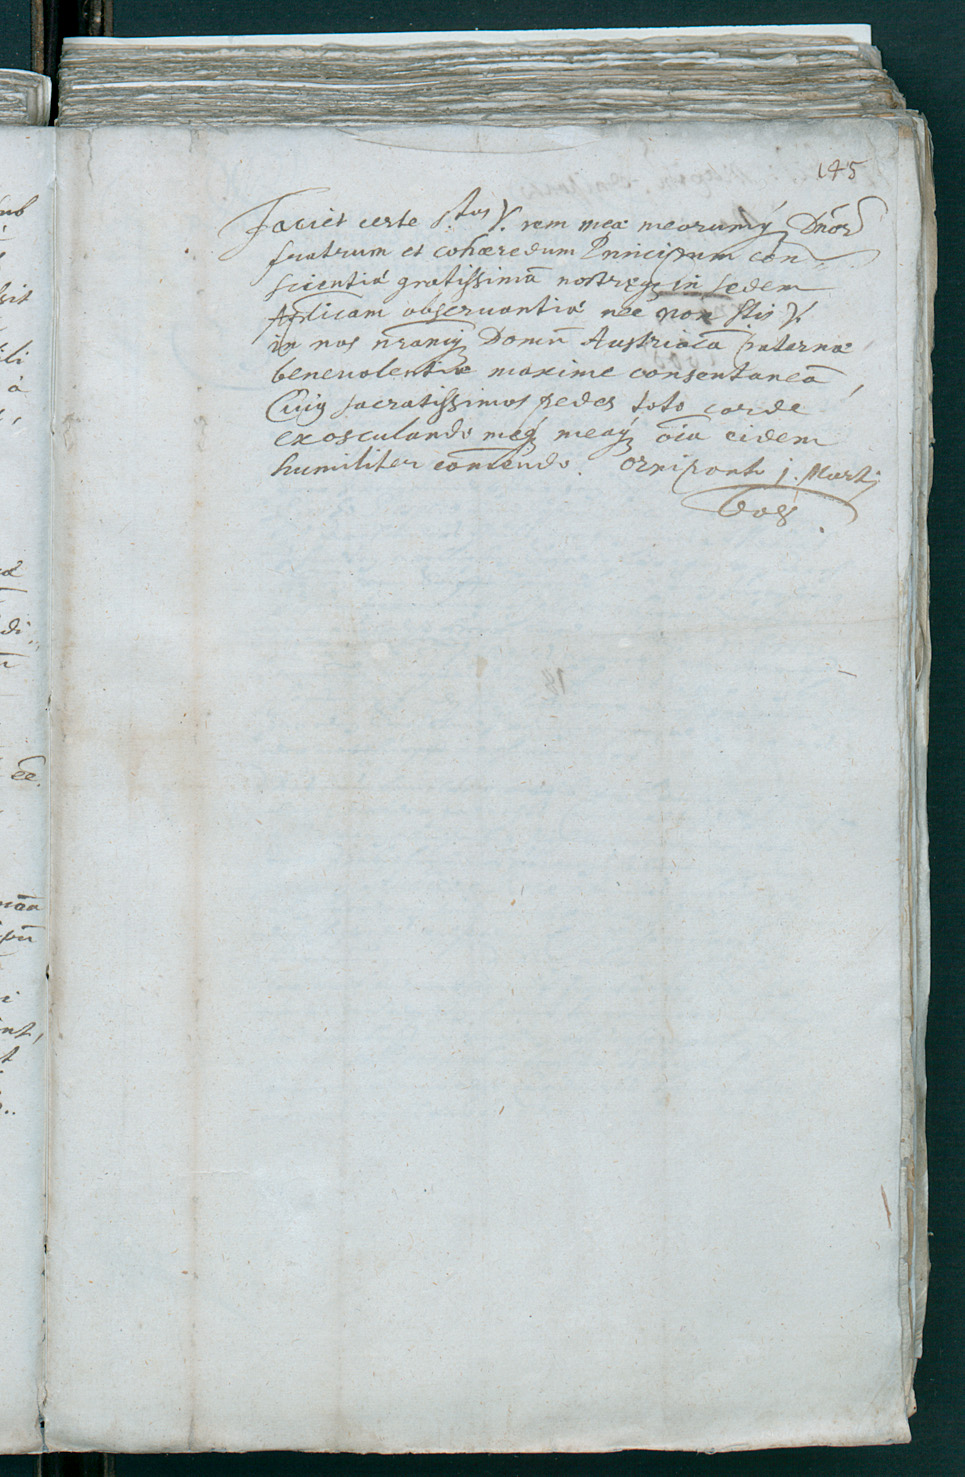 145
Faciet certe S.tas V. rem meæ meorumq Dnor
fratrum et cohæredum Principum con
scientiá gratissimã nostræq in sedem
Aplicam obseruantiá nec non Stis V.
in nos nramq Domũ Austriacã paternæ
beneuolentiæ maxime consentaneã,
Cuiq sacratissimos pedes toto corde
exosculando meq meaq oĩa eidem
humiliter comẽndo. Oeniponti j. Martij